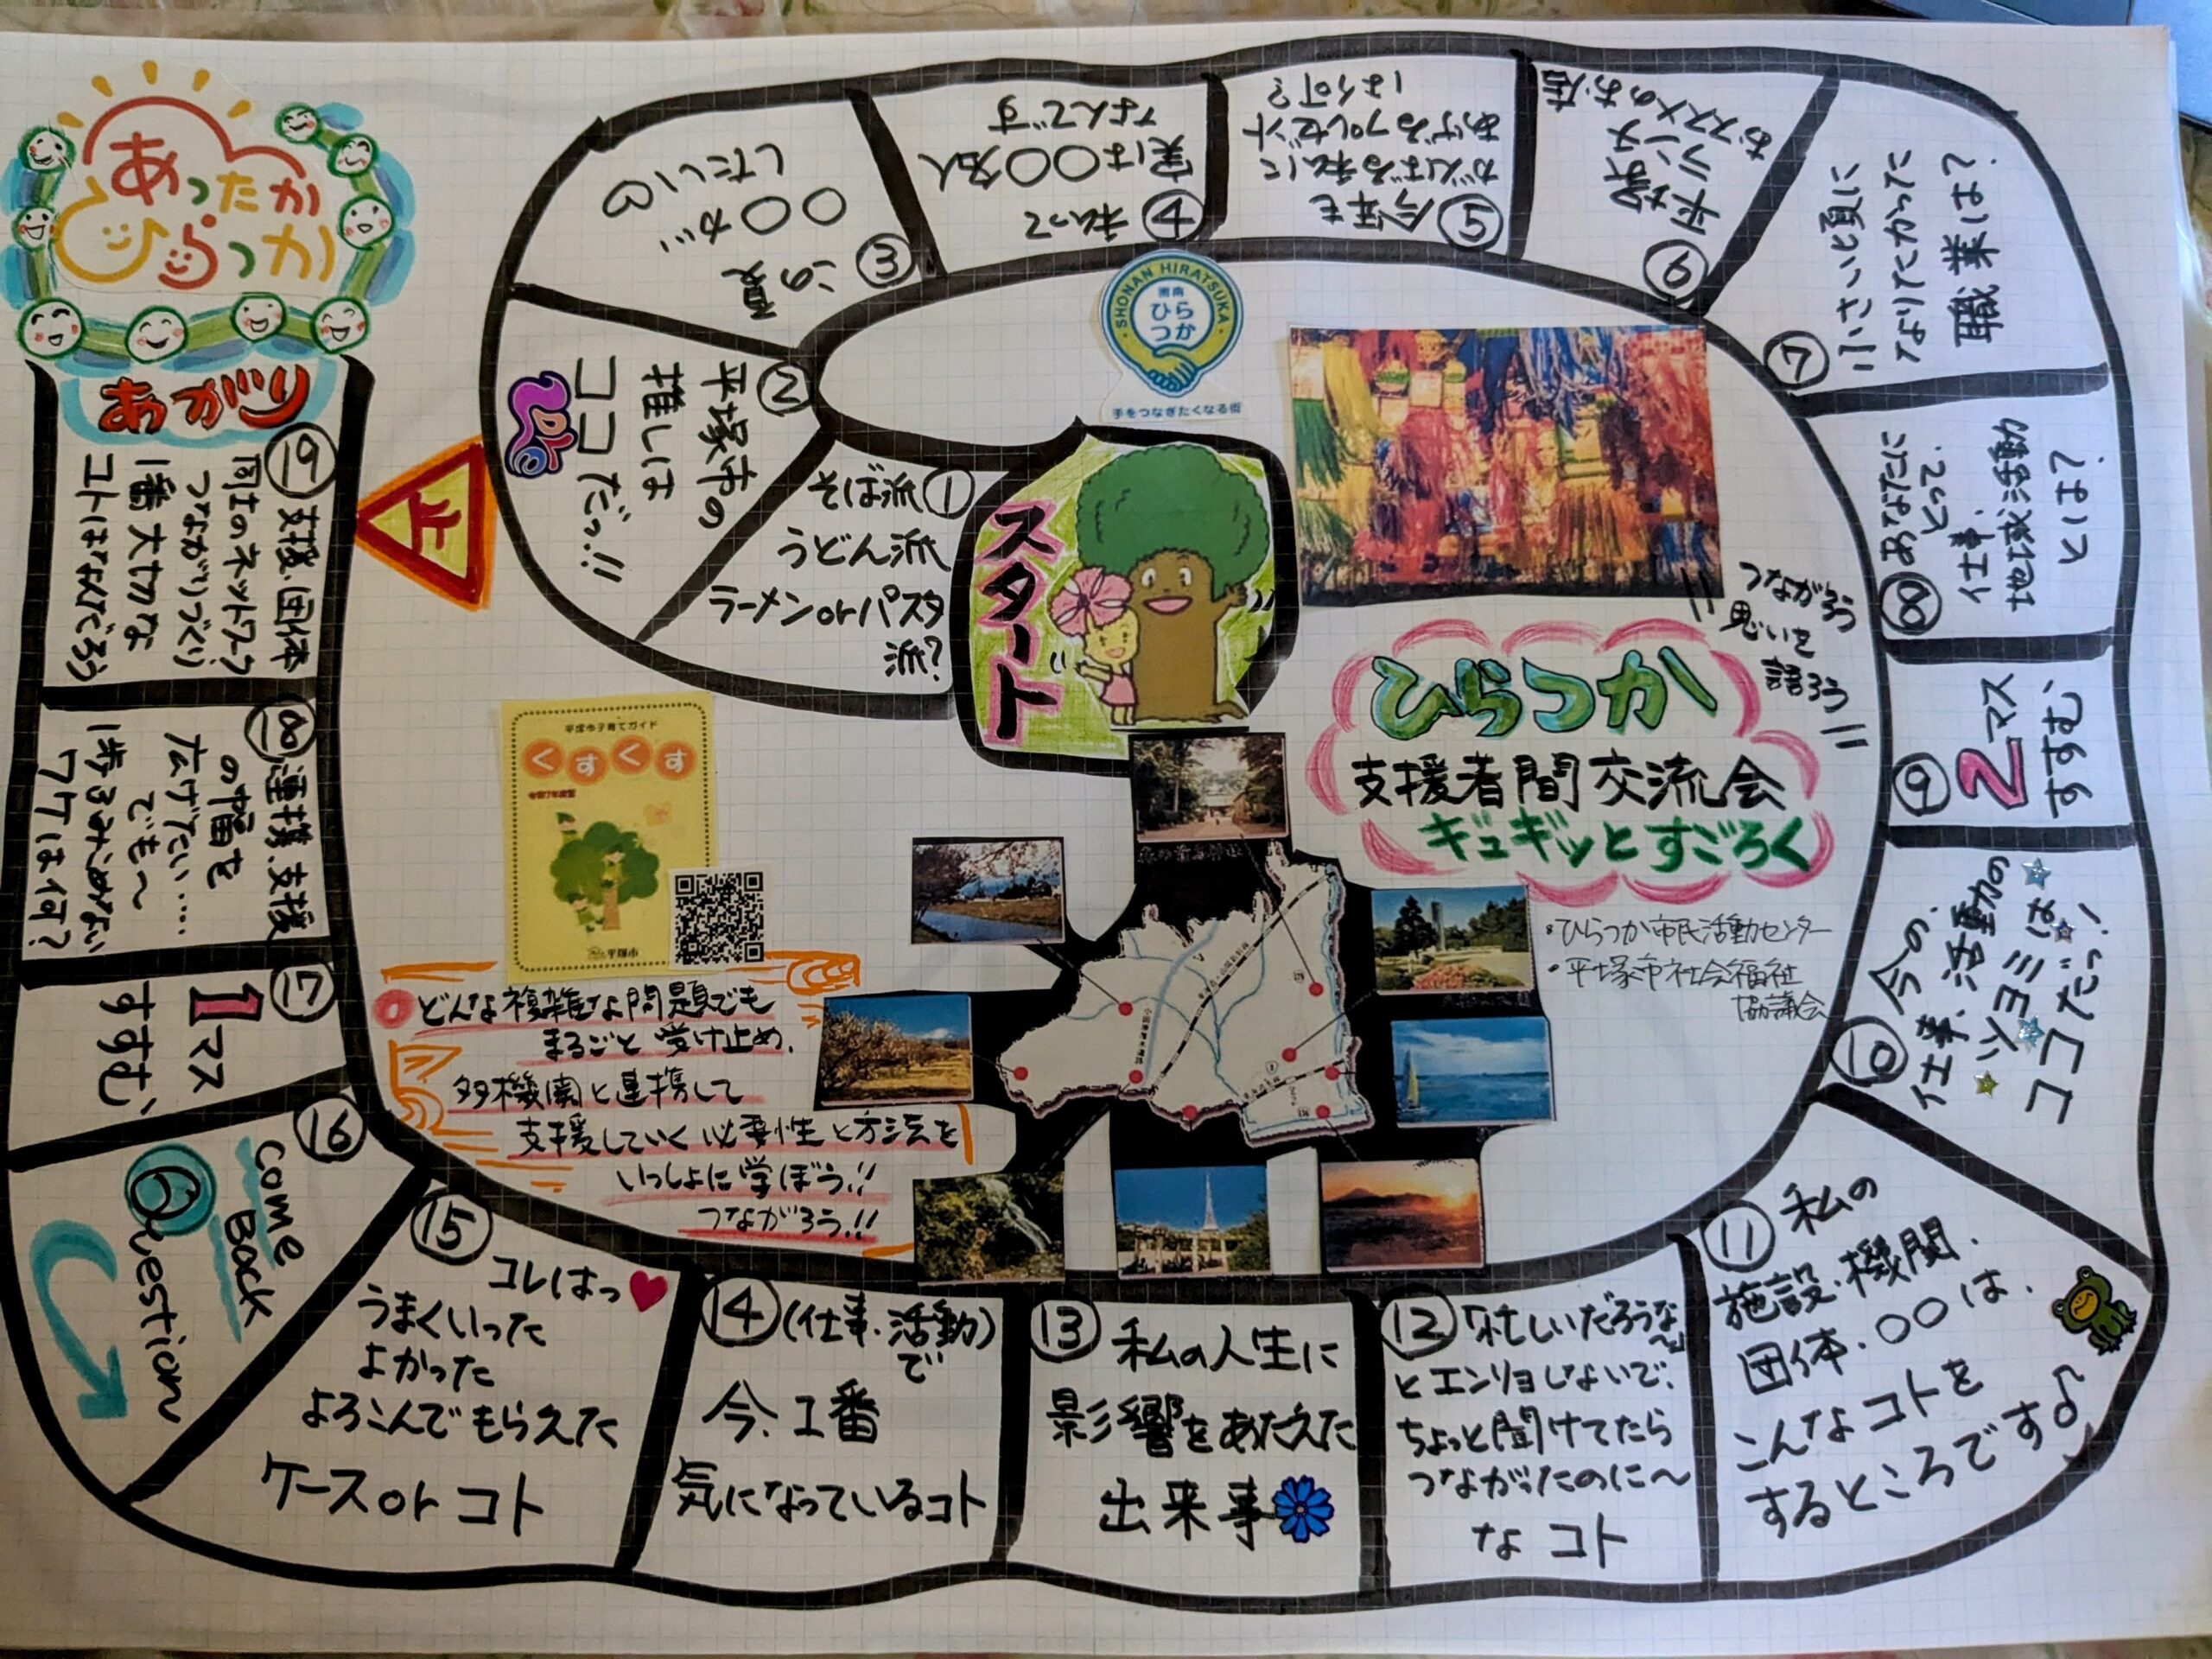 あったか
ひらつか
あがり
スタート
①そば派
うどん派
ラーメンorパスタ
派?
②平塚市の
推しは
ココだっ!!
③この夏
〇〇が
したい♡
④私って
実は〇〇名人
なんです
⑤今年も
がんばる私に
あげるプレゼント
は何?
⑥平塚
ランチ
おススメのお店
⑦小さい頃に
なりたかった
職業は?
⑧あなたに
とって、
仕事・
地域活動
とは?
⑨2マス
すすむ
⑩今の、
仕事、活動の
ツヨミは
ココだっ!
⑪私の
施設・機関・
団体・〇〇は、
こんなコトを
するところです♪
⑫「忙しいだろうな〜」
とエンリョしないで、
ちょっと聞けてたら
つながったのに〜
な コト
⑬私の人生に
影響をあたえた
出来事
⑭(仕事・活動)
で
今、1番
気になっているコト
⑮コレはっ♥
うまくいった
よかった
よろこんでもらえた
ケースorコト
⑯COME
BACK
Question
⑰1マス
すすむ
⑱連携、支援
の幅を
広げたい……
でも〜
1歩ふみこめない
ワケは何?
⑲支援、団体
同士のネットワーク
つながりづくり
1番大切な
コトはなんだろう
止
SHONAN HIRATSUKA
湘南
ひら
つか
手をつなぎたくなる街
つながろう
思いを
語ろう
ひらつか
支援者間交流会
ギュギッとすごろく
・ひらつか市民活動センター
・平塚市社会福祉
協議会
平塚市子育てガイド
くすくす
令和7年度版
平塚市
どんな複雑な問題でも
まるごと受け止め、
多機関と連携して
支援していく必要性と方法を
いっしょに学ぼう!!
つながろう!!